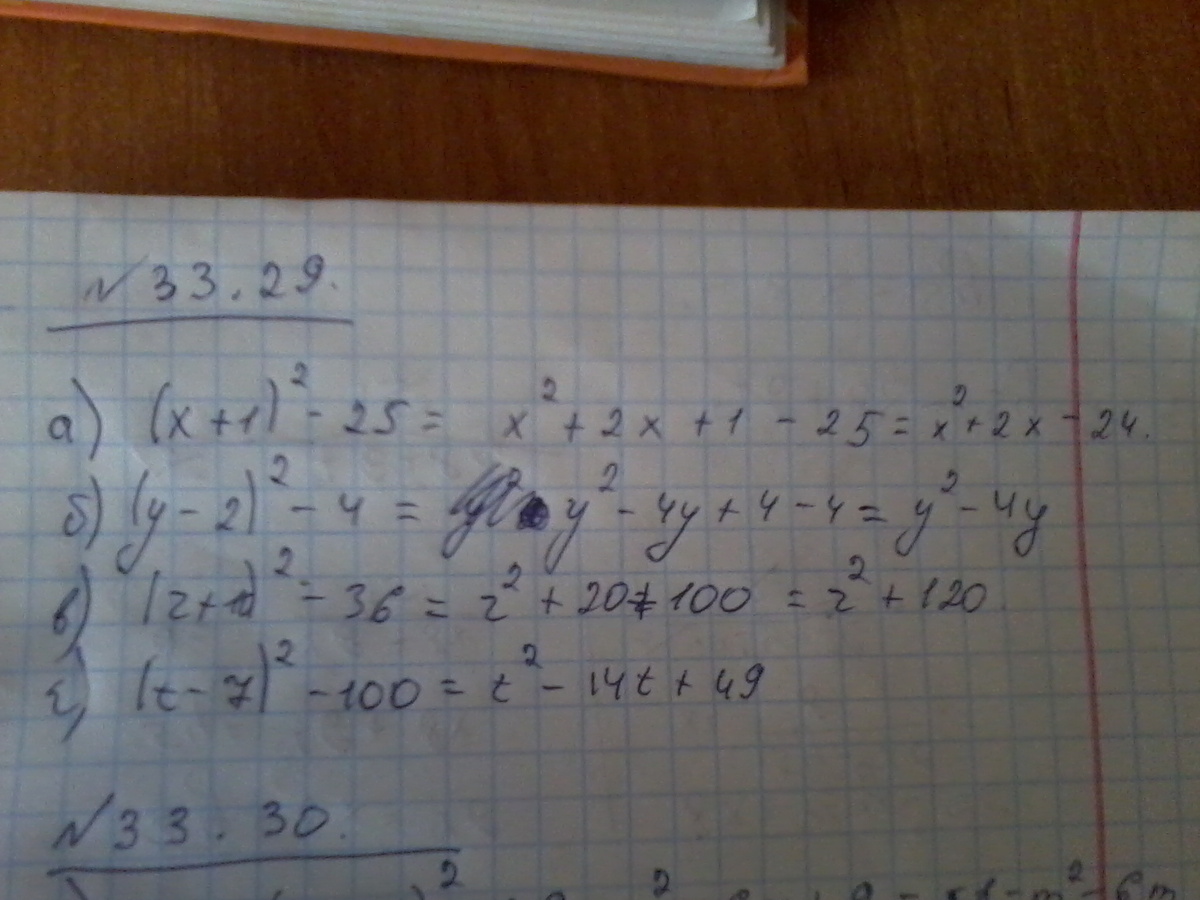 №33.29.
а) (x+1)² - 25 = x² + 2x + 1 - 25 = x² + 2x - 24.
б) (y - 2)² - 4 = y² - 4y + 4 - 4 = y² - 4y
в) (z+10)² - 36 = z² + 20 + 100 = z² + 120
г) (t - 7)² - 100 = t² - 14t + 49
№33.30.